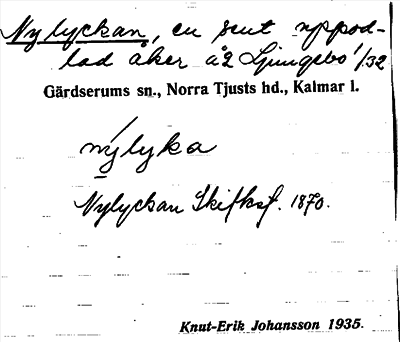 Nylyckan, en sent uppod-
lad åker å 2 Ljungebo 1/32
Gärdserums sn., Norra Tjusts hd., Kalmar l.
nýlyka
Nylyckan Skifksf. 1870.
Knut-Erik Johansson 1935.